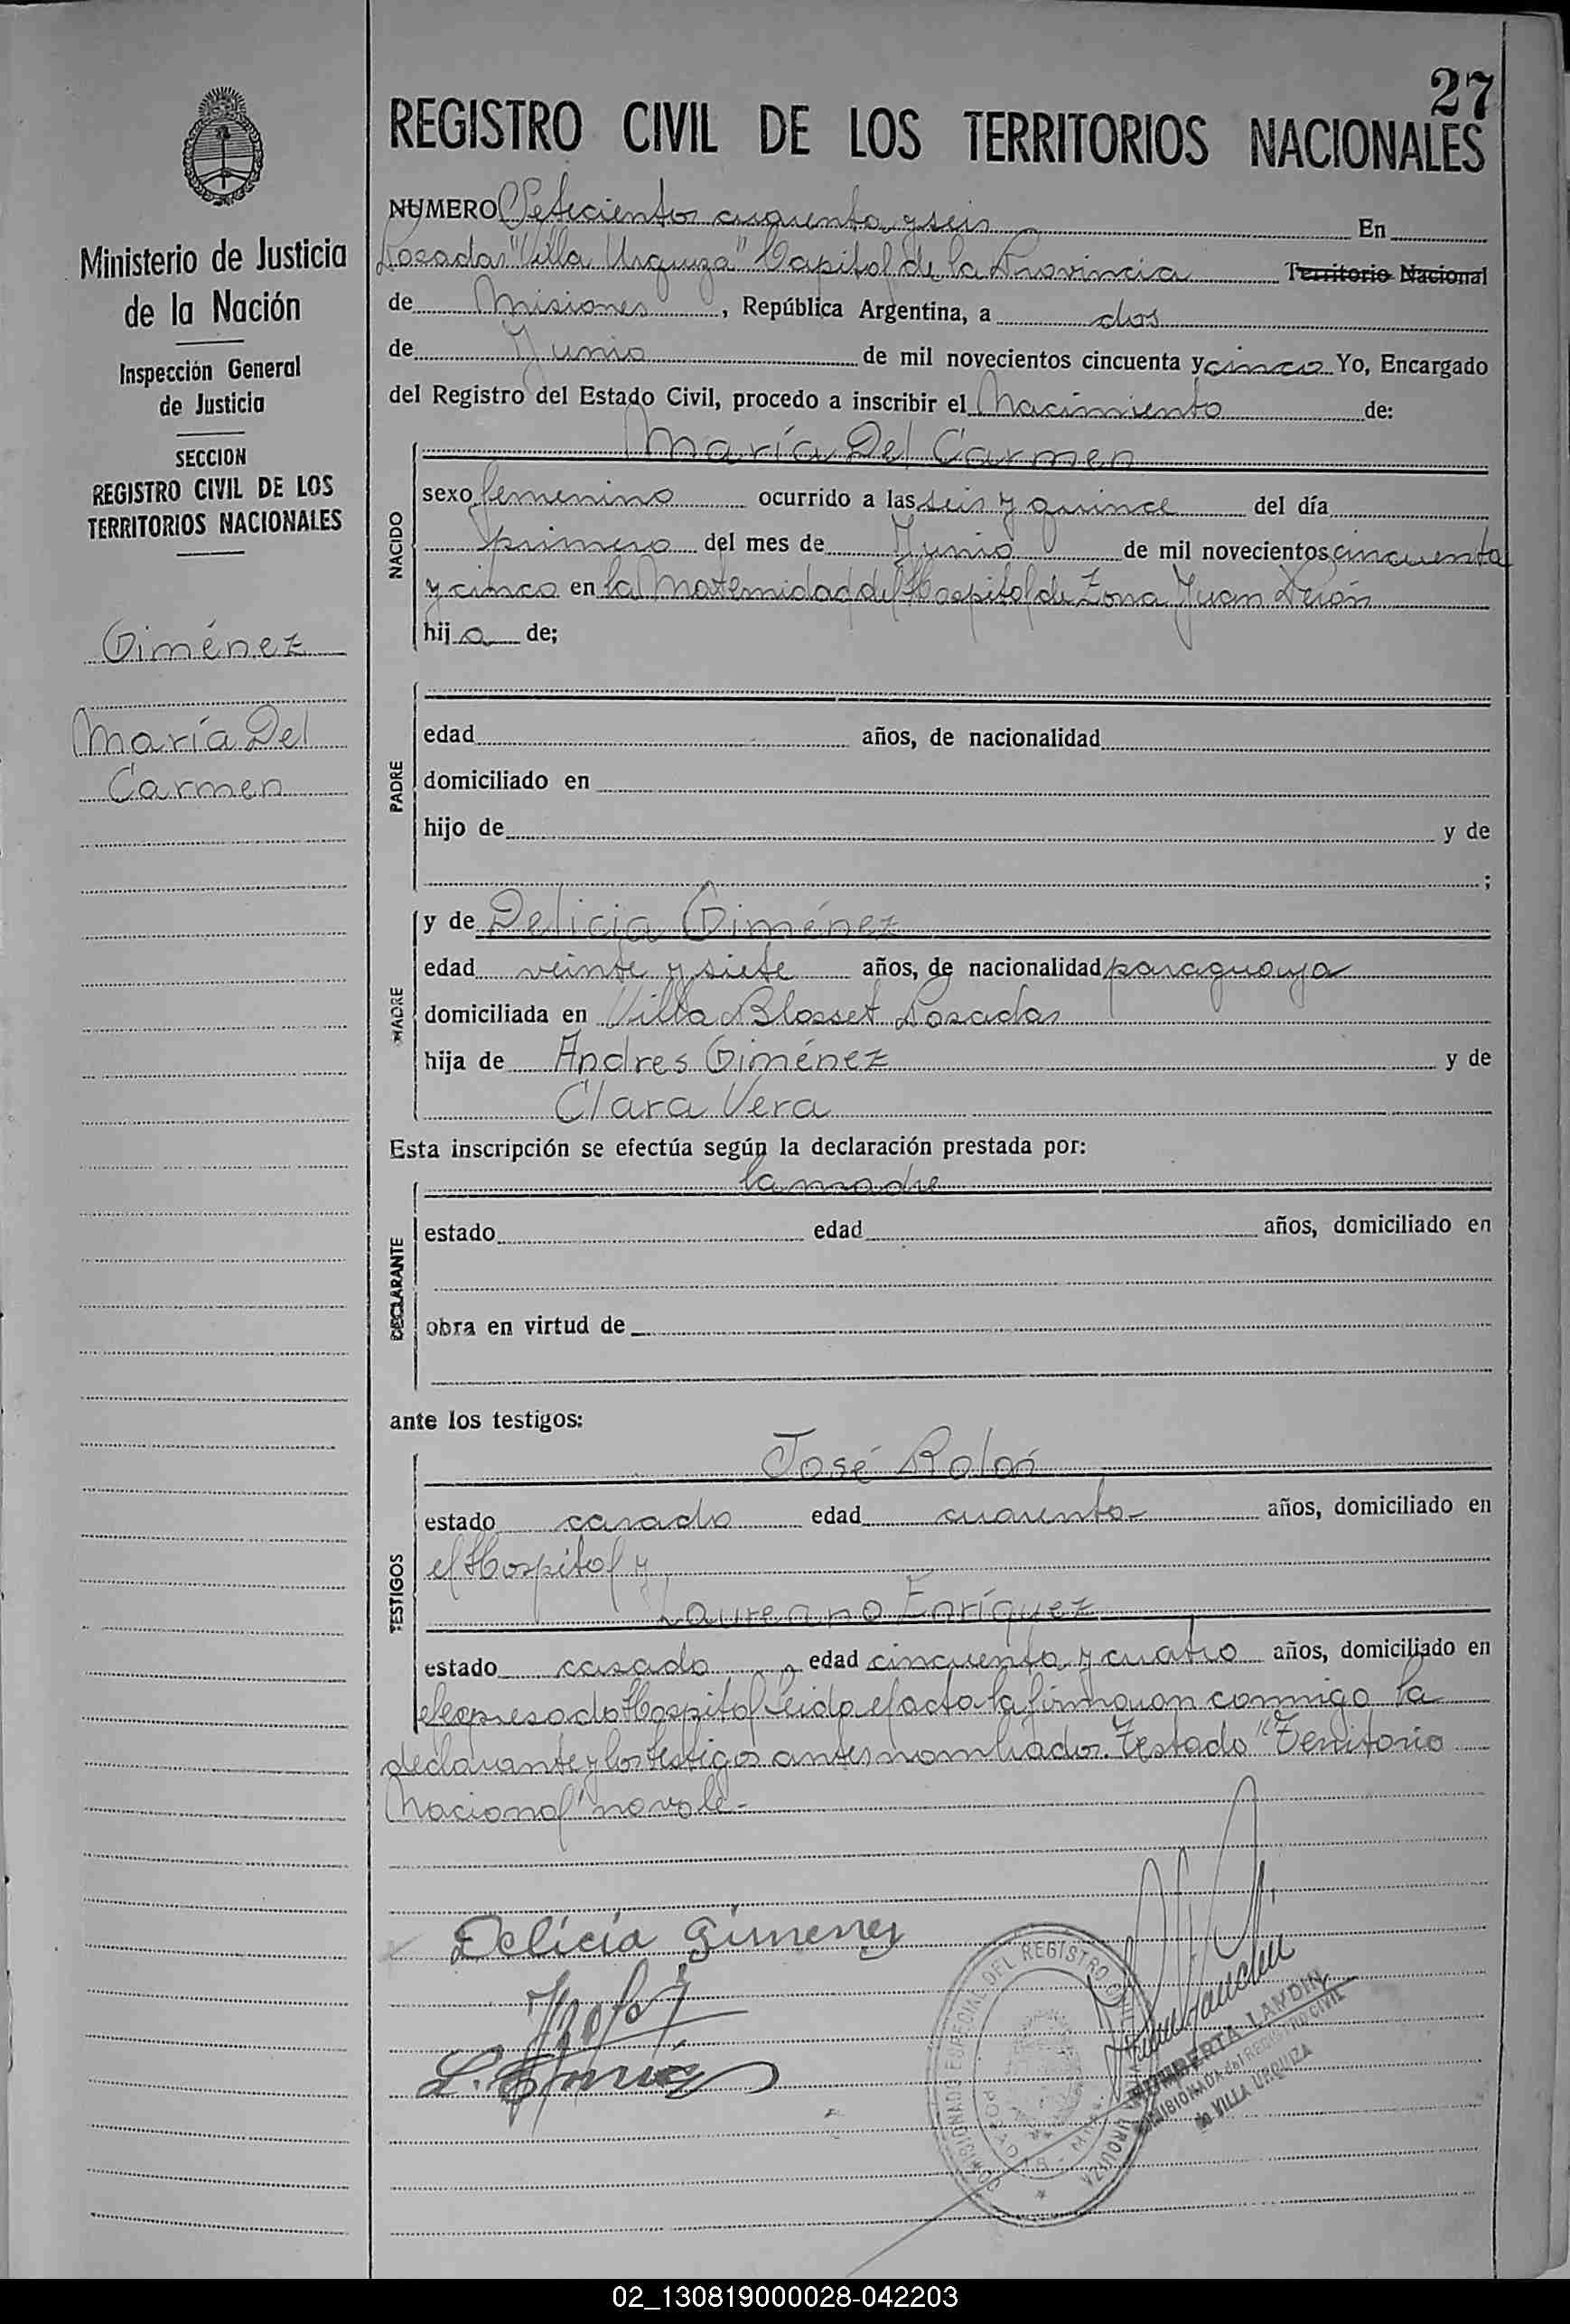 27
REGISTRO CIVIL DE LOS TERRITORIOS NACIONALES
Ministerio de Justicia
de la Nación
Inspección General
de Justicia
SECCION
REGISTRO CIVIL DE LOS
TERRITORIOS NACIONALES
Giménez
María Del
Carmen
NUMERO Setecientos cuarenta y seis En
Posadas "Villa Urquiza" Capital de la Provincia Territorio Nacional
de Misiones, República Argentina, a dos
de Junio de mil novecientos cincuenta y cinco Yo, Encargado
del Registro del Estado Civil, procedo a inscribir el Nacimiento de:
NACIDO
María Del Carmen
sexo femenino ocurrido a las seis y quince del día
primero del mes de Junio de mil novecientos cincuenta
y cinco en la Maternidad del Hospital de Zona Juan Perón
hija de;
PADRE
edad años, de nacionalidad
domiciliado en
hijo de y de
;
MADRE
y de Delicia Giménez
edad veinte y siete años, de nacionalidad paraguaya
domiciliada en Villa Blosset Posadas
hija de Andres Giménez y de
Clara Vera
Esta inscripción se efectúa según la declaración prestada por:
la madre
DECLARANTE
estado edad años, domiciliado en
obra en virtud de
ante los testigos:
TESTIGOS
José Rolón
estado casado edad cuarenta años, domiciliado en
el Hospital y
Laureano Enríquez
estado casado, edad cincuenta y cuatro años, domiciliado en
el expresado Hospital Leida el acta la firmaron conmigo la
declarante y los testigos antes nombrados. Testado "Territorio
Nacional" no vale.-
Delicia Gimenez
DEL REGISTRO
URQUIZA
LANDIN
COMISIONADA del REGISTRO CIVIL
de VILLA URQUIZA
02_130819000028-042203